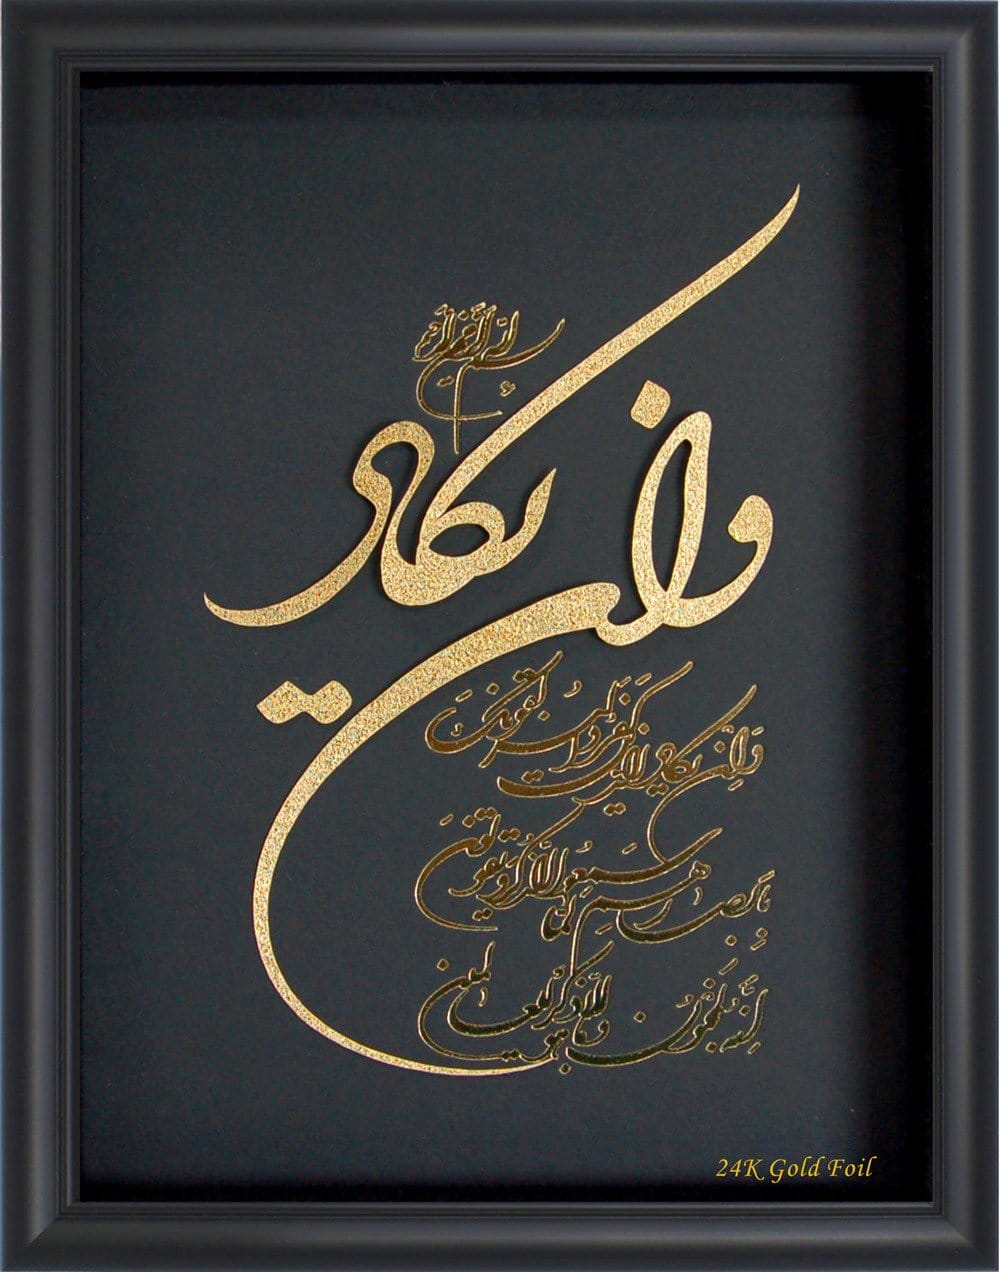 بسم الله الرحمن الرحیم
وان یکاد
وَاِن یَکادُ الَّذینَ کَفَروا لَیُزلِقونَکَ
بِاَبصارِهِم لَمّا سَمِعُوا الذِّکرَ وَیَقولونَ
اِنَّهُ لَمَجنونٌ وَما هُوَ اِلّا ذِکرٌ لِلعالَمین
24K Gold Foil